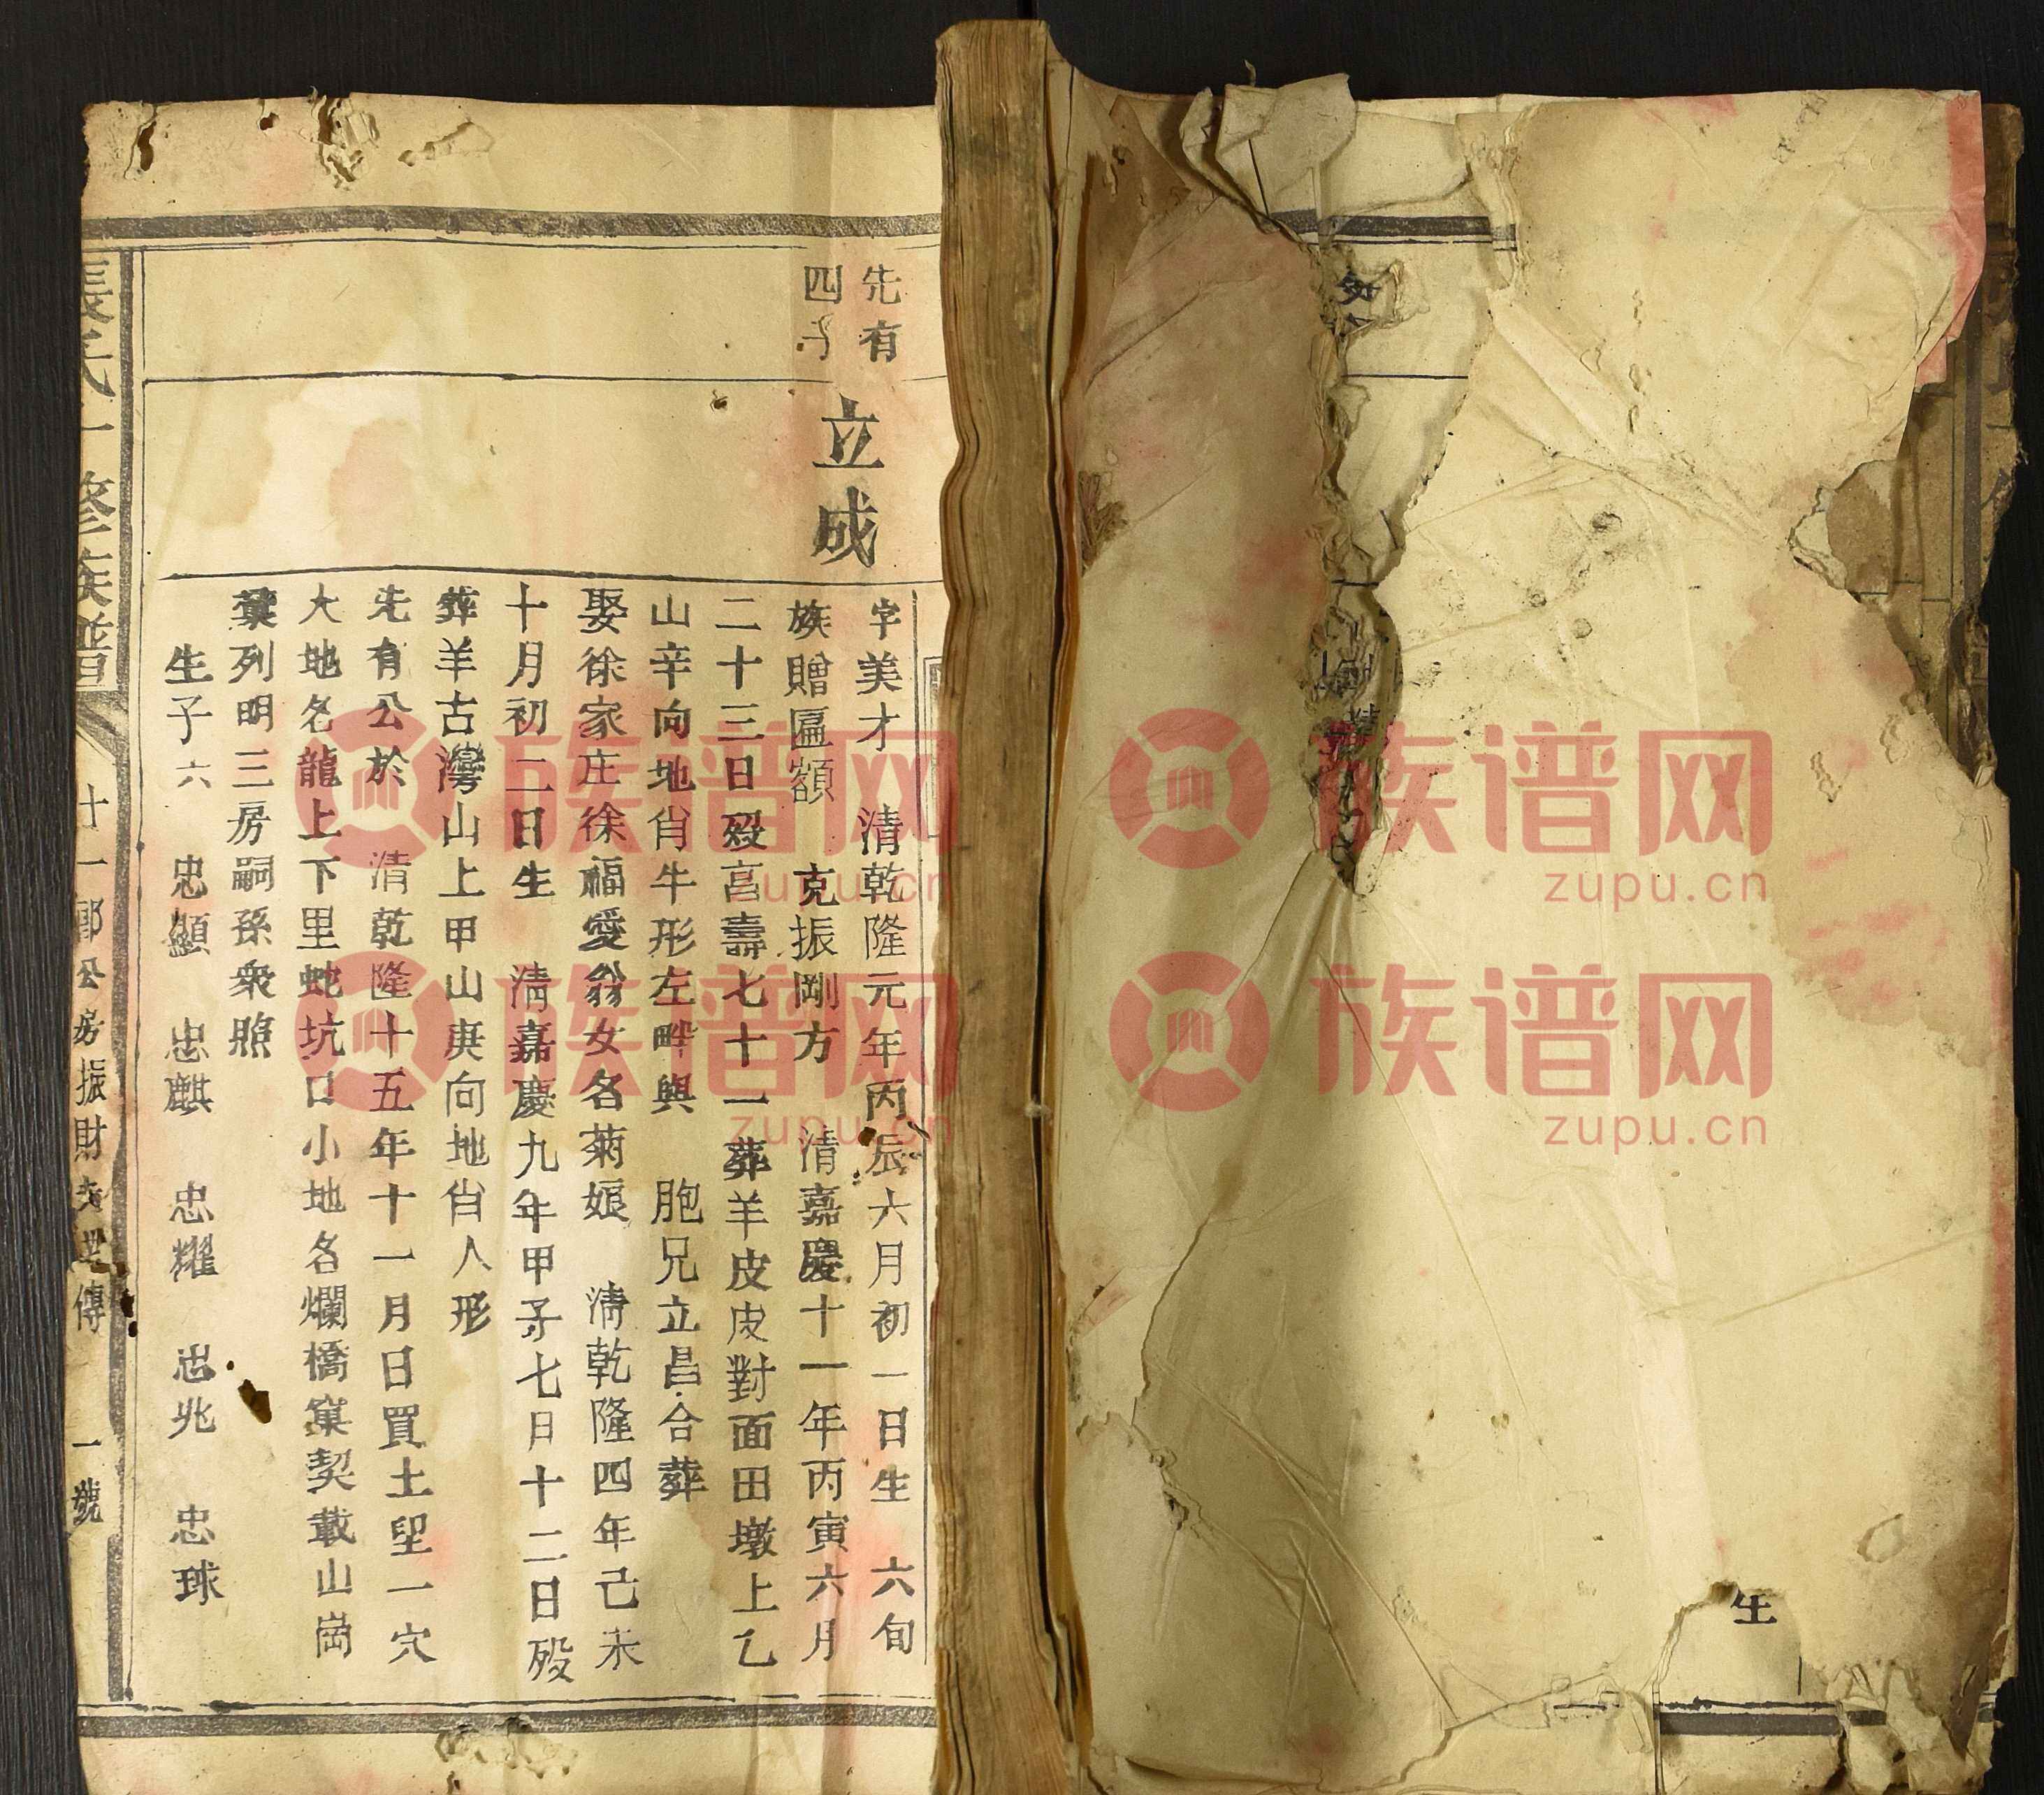 生
先有
四子
立成
字美才　清乾隆元年丙辰六月初一日生　六旬
族贈匾額　克振剛方　清嘉慶十一年丙寅六月
二十三日歿高壽七十一葬羊皮皮對面田墩上乙
山辛向地肖牛形左畔與　胞兄立昌合葬
娶徐家庄徐福愛翁女名菊娘　清乾隆四年己未
十月初二日生　清嘉慶九年甲子七月十二日歿
葬羊古灣山上甲山庚向地肖人形
先有公於　清乾隆十五年十一月日買土堲一穴
大地名龍上下里蛇坑口小地名爛橋窠契載山崗
糞列明三房嗣孫衆照
生子六　忠顯　忠麒　忠耀　忠兆　忠球
張氏 修族譜
廿一郎公房振財 世傳　一號
族谱网
zupu.cn
族谱网
zupu.cn
族谱网
zupu.cn
族谱网
zupu.cn